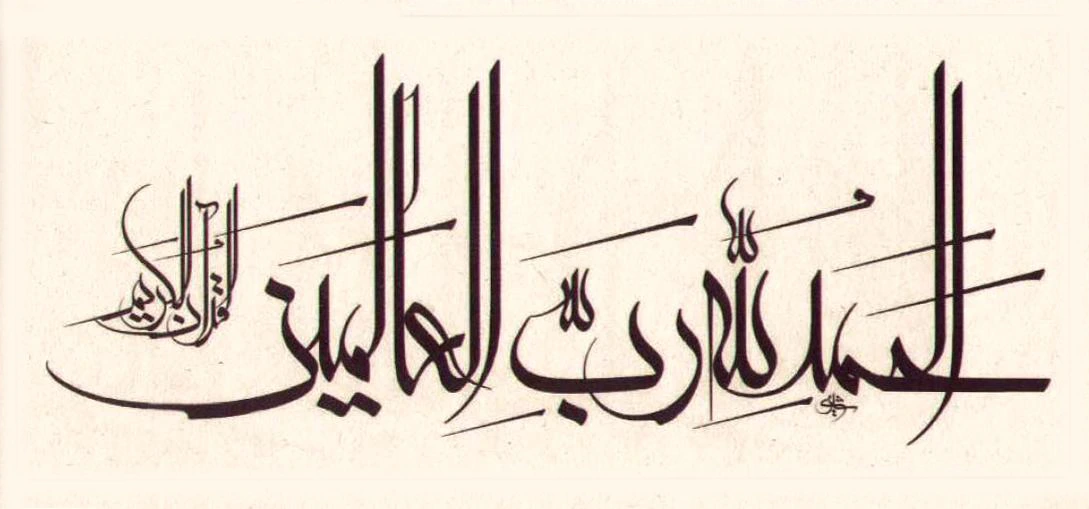 الحمدُ للّٰه ربِّ العالمين
القرآن الكريم